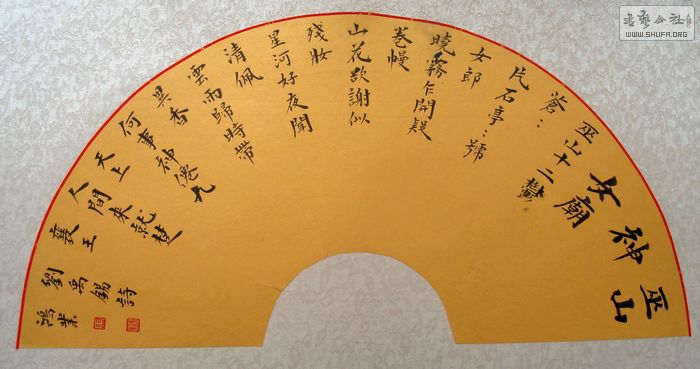 巫山
神
女廟
巫山十二鬱
蒼〻
片石亭〻號
女郎
曉霧乍開疑
卷幔
山花欲謝似
殘妝
星河好夜聞
清佩
雲雨歸時帶
異香
何事神僊九
天上
人間來就楚
襄王
劉禹錫詩
鴻業
書藝公社
WWW.SHUFA.ORG